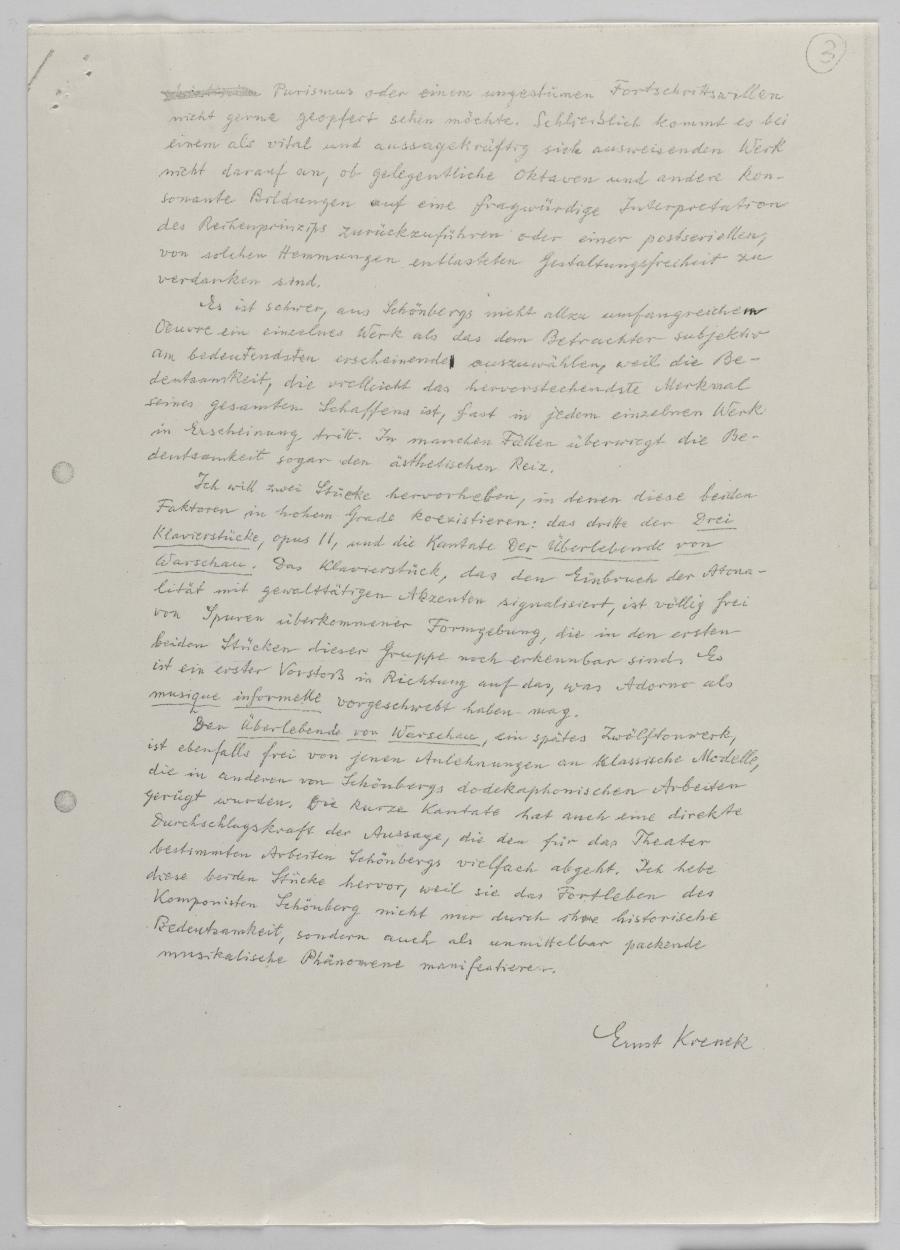 3
Purismus oder einem ungestümen Fortschrittswillen
nicht gerne geopfert sehen möchte. Schliesslich kommt es bei
einem als vital und aussagekräftig sich ausweisenden Werk
nicht darauf an, ob gelegentliche Oktaven und andere kon-
sonante Bildungen auf eine fragwürdige Interpretation
des Reihenprinzips zurückzuführen oder einer postseriellen,
von solchen Hemmungen entlasteten Gestaltungsfreiheit zu
verdanken sind.
Es ist schwer, aus Schönbergs nicht allzu umfangreichem
Oeuvre ein einzelnes Werk als das dem Betrachter subjektiv
am bedeutendsten erscheinende auszuwählen, weil die Be-
deutsamkeit, die vielleicht das hervorstechendste Merkmal
seines gesamten Schaffens ist, fast in jedem einzelnen Werk
in Erscheinung tritt. In manchen Fällen überwiegt die Be-
deutsamkeit sogar den ästhetischen Reiz.
Ich will zwei Stücke hervorheben, in denen diese beiden
Faktoren in hohem Grade koexistieren: das dritte der Drei
Klavierstücke, opus 11, und die Kantate Der Überlebende von
Warschau. Das Klavierstück, das den Einbruch der Atona-
lität mit gewalttätigen Akzenten signalisiert, ist völlig frei
von Spuren überkommener Formgebung, die in den ersten
beiden Stücken dieser Gruppe noch erkennbar sind. Es
ist ein erster Vorstoß in Richtung auf das, was Adorno als
musique informelle vorgeschwebt haben mag.
Der Überlebende von Warschau, ein spätes Zwölftonwerk,
ist ebenfalls frei von jenen Anlehnungen an klassische Modelle,
die in anderen von Schönbergs dodekaphonischen Arbeiten
gerügt wurden. Die kurze Kantate hat auch eine direkte
Durchschlagskraft der Aussage, die den für das Theater
bestimmten Arbeiten Schönbergs vielfach abgeht. Ich hebe
diese beiden Stücke hervor, weil sie das Fortleben des
Komponisten Schönberg nicht nur durch ihre historische
Bedeutsamkeit, sondern auch als unmittelbar packende
musikalische Phänomene manifestieren.
Ernst Krenek